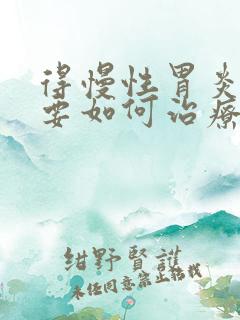 得慢性胃炎
要如何治療
紺野賢護
未任同意禁止轉載